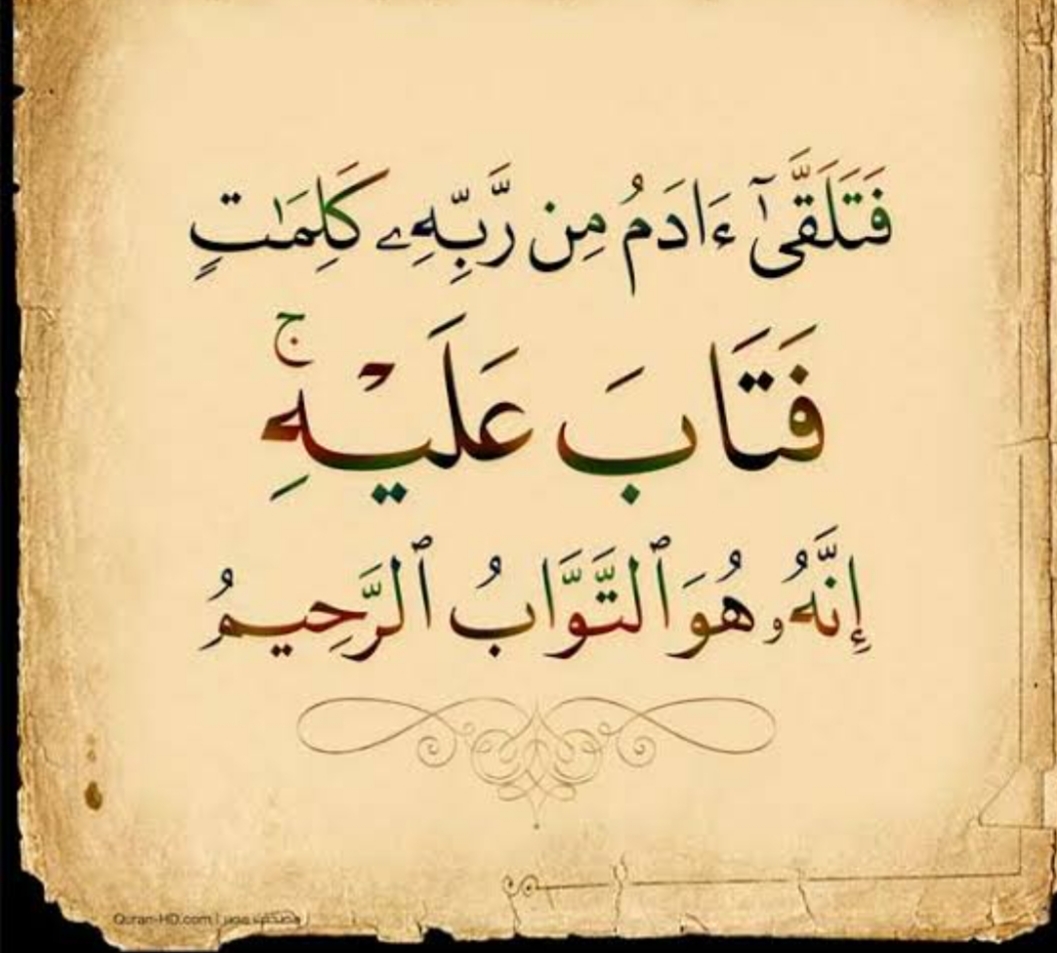 فَتَلَقَّىٰٓ ءَادَمُ مِن رَّبِّهِۦ كَلِمَٰتٍ
فَتَابَ عَلَيْهِۚ
إِنَّهُۥ هُوَ ٱلتَّوَّابُ ٱلرَّحِيمُ
Quran-HD.com |